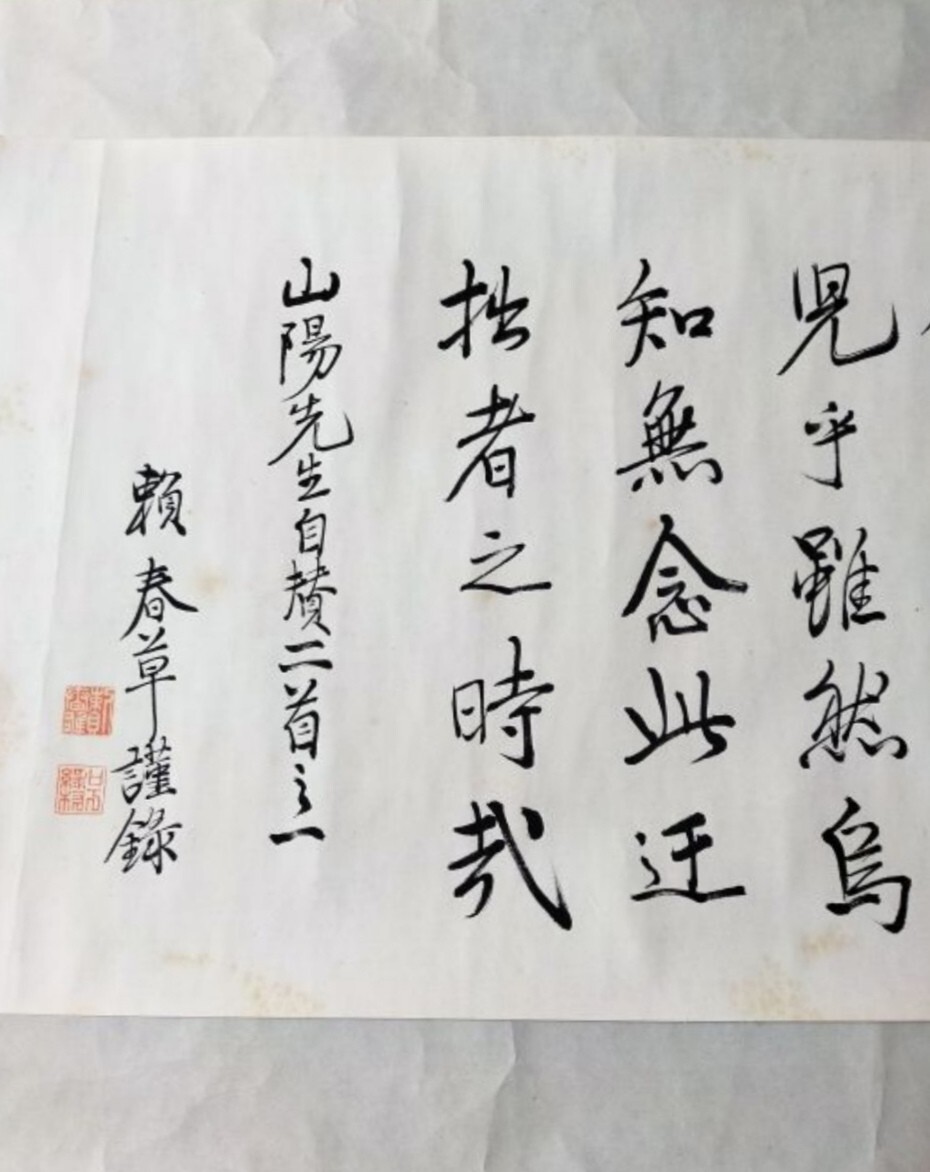 児乎雖然烏
知無念此迂
拙者之時哉
山陽先生自賛二首之一
賴春草謹錄